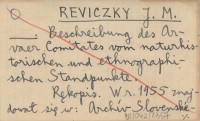 REVICZKY J. M.
—. Beschreibung des Ar-
vaer Comitates vom naturhis-
torischen und ethnographi-
schen Standpunkte.
Rękopis. W r. 1955 znaj-
dował się w: Archív Slovenské-